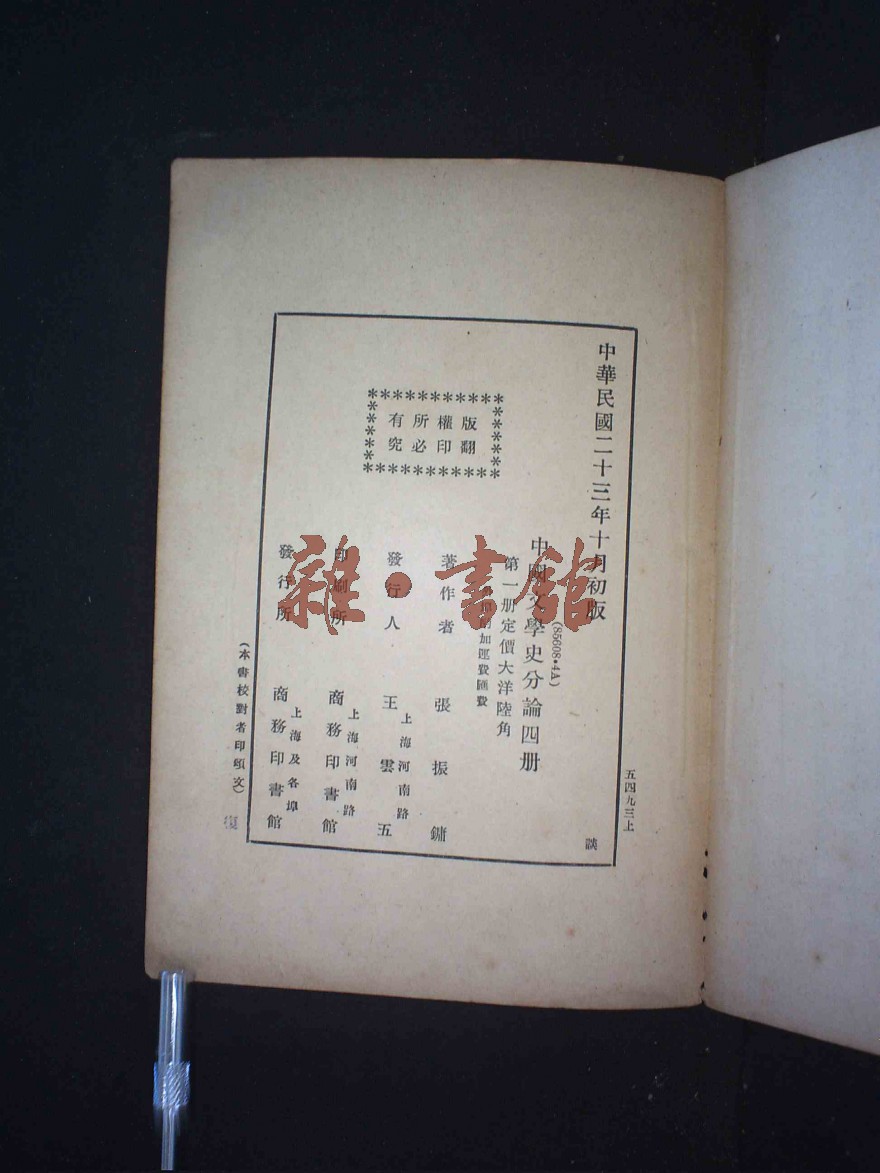 中華民國二十三年十月初版
五四九三上
(85608•4A)
中國文學史分論四册
第一册定價大洋陸角
外埠酌加運費匯費
談
版權所有
翻印必究
著作者 張振鏞
上海河南路
發行人 王雲五
上海河南路
印刷所 商務印書館
上海及各埠
發行所 商務印書館
(本書校對者印頌文)
復
雜•書館